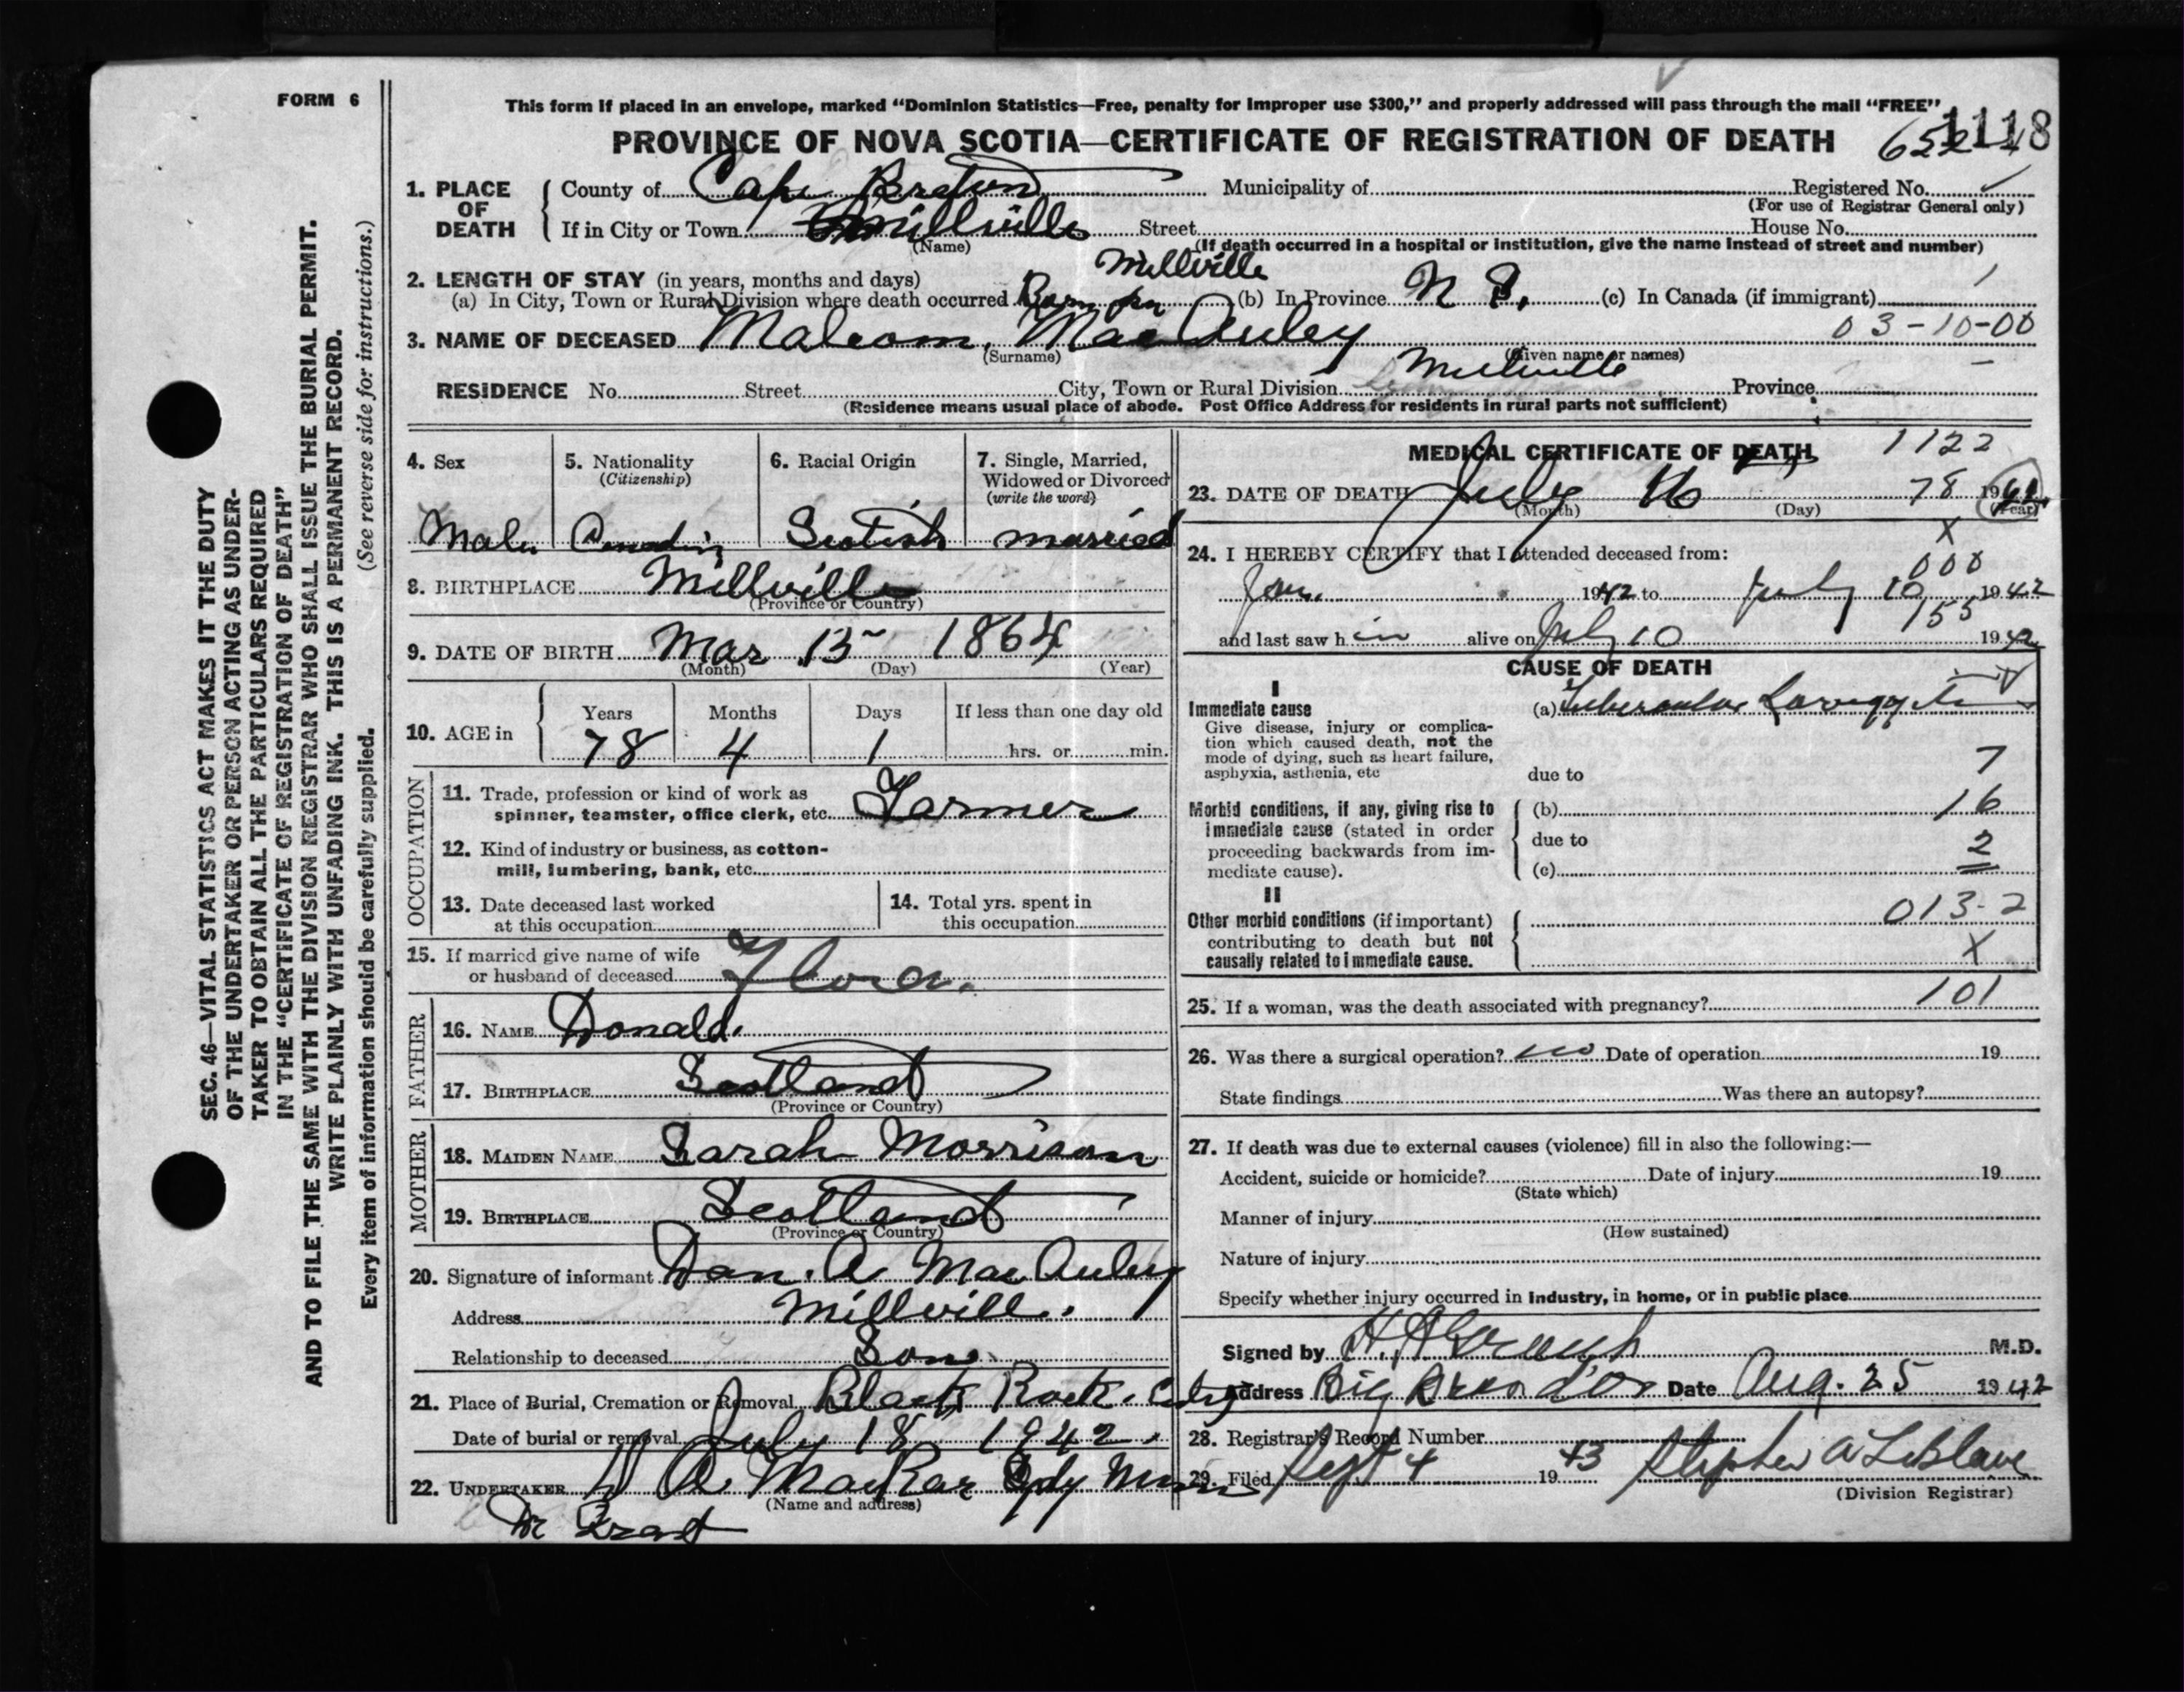 FORM 6
SEC. 46—VITAL STATISTICS ACT MAKES IT THE DUTY
OF THE UNDERTAKER OR PERSON ACTING AS UNDER-
TAKER TO OBTAIN ALL THE PARTICULARS REQUIRED
IN THE "CERTIFICATE OF REGISTRATION OF DEATH"
AND TO FILE THE SAME WITH THE DIVISION REGISTRAR WHO SHALL ISSUE THE BURIAL PERMIT.
WRITE PLAINLY WITH UNFADING INK. THIS IS A PERMANENT RECORD.
Every item of information should be carefully supplied. (See reverse side for instructions.)
This form if placed in an envelope, marked "Dominion Statistics—Free, penalty for improper use $300," and properly addressed will pass through the mail "FREE"
PROVINCE OF NOVA SCOTIA—CERTIFICATE OF REGISTRATION OF DEATH 1118
1. PLACE OF DEATH County of Cape Breton Municipality of Registered No.
(For use of Registrar General only)
If in City or Town Millville Street House No.
(Name) (If death occurred in a hospital or institution, give the name instead of street and number)
2. LENGTH OF STAY (in years, months and days) Millville 1
(a) In City, Town or Rural Division where death occurred Born in (b) In Province N S. (c) In Canada (if immigrant)
03-10-00
3. NAME OF DECEASED Malcom. MacAuley
(Surname) (Given name or names)
RESIDENCE No. Street City, Town or Rural Division Millville Province
(Residence means usual place of abode. Post Office Address for residents in rural parts not sufficient)
4. Sex 5. Nationality 6. Racial Origin 7. Single, Married,
(Citizenship) Widowed or Divorced
(write the word)
Male Canadian Scotish married
8. BIRTHPLACE Millville
(Province or Country)
9. DATE OF BIRTH Mar 15 1864
(Month) (Day) (Year)
10. AGE in Years Months Days If less than one day old
78 4 1 hrs. or min.
OCCUPATION
11. Trade, profession or kind of work as
spinner, teamster, office clerk, etc. Farmer
12. Kind of industry or business, as cotton-
mill, lumbering, bank, etc.
13. Date deceased last worked
at this occupation
14. Total yrs. spent in
this occupation
15. If married give name of wife
or husband of deceased Flora.
FATHER
16. NAME Donald.
17. BIRTHPLACE Scotland
(Province or Country)
MOTHER
18. MAIDEN NAME Sarah Morrison
19. BIRTHPLACE Scotland
(Province or Country)
20. Signature of informant Dan. A MacAuley
Address Millville.
Relationship to deceased Son.
21. Place of Burial, Cremation or Removal Black Rock.
Date of burial or removal July 18 1942.
22. UNDERTAKER D A MacRae Sydy Mines
(Name and address)
Dr Grant
MEDICAL CERTIFICATE OF DEATH 1122
23. DATE OF DEATH July 16 78 1942
(Month) (Day) (Year)
X
24. I HEREBY CERTIFY that I attended deceased from: 000
Jan. 1942 to July 10 1942
155
and last saw h im alive on July 10 1942
CAUSE OF DEATH
I
Immediate cause (a) Tubercular Laryngitis
Give disease, injury or complica-
tion which caused death, not the
mode of dying, such as heart failure,
asphyxia, asthenia, etc due to 7
Morbid conditions, if any, giving rise to (b) 16
immediate cause (stated in order
proceeding backwards from im- due to 2
mediate cause). (c)
II
Other morbid conditions (if important) 013-2
contributing to death but not
causally related to immediate cause. X
25. If a woman, was the death associated with pregnancy? 101
26. Was there a surgical operation? no Date of operation 19
State findings Was there an autopsy?
27. If death was due to external causes (violence) fill in also the following:—
Accident, suicide or homicide? Date of injury 19
(State which)
Manner of injury
(How sustained)
Nature of injury
Specify whether injury occurred in industry, in home, or in public place
Signed by M.D.
Address Big Bras d'Or Date Aug. 25 1942
28. Registrar's Record Number
29. Filed Sept 4 1943 Stephen A LeBlanc
(Division Registrar)